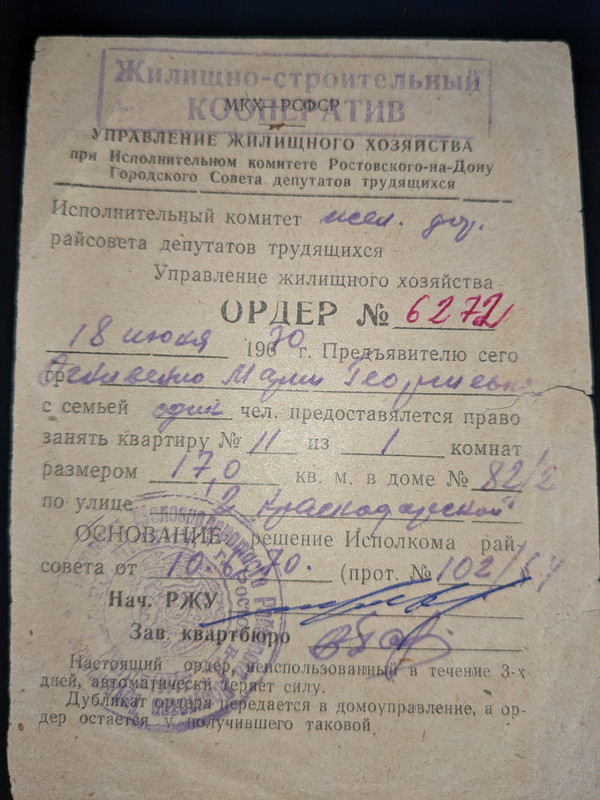 Жилищно-строительный
КООПЕРАТИВ
МКХ РСФСР
УПРАВЛЕНИЕ ЖИЛИЩНОГО ХОЗЯЙСТВА
при Исполнительном комитете Ростовского-на-Дону
Городского Совета депутатов трудящихся
Исполнительный комитет жел. дор.
райсовета депутатов трудящихся
Управление жилищного хозяйства
ОРДЕР № 6272
18 июня 1970 г. Предъявителю сего
гр. Марии Георгиевне
с семьей один чел. предоставялется право
занять квартиру № 11 из 1 комнат
размером 17,0 кв. м. в доме № 82/2
по улице 2 Краснодарской
ОСНОВАНИЕ: решение Исполкома рай-
совета от 10.6.70. (прот. № 102/
Нач. РЖУ
Зав. квартбюро
Настоящий ордер, неиспользованный в течение 3-х
дней, автоматически теряет силу.
Дубликат ордера передается в домоуправление, а ор-
дер остается у получившего таковой.